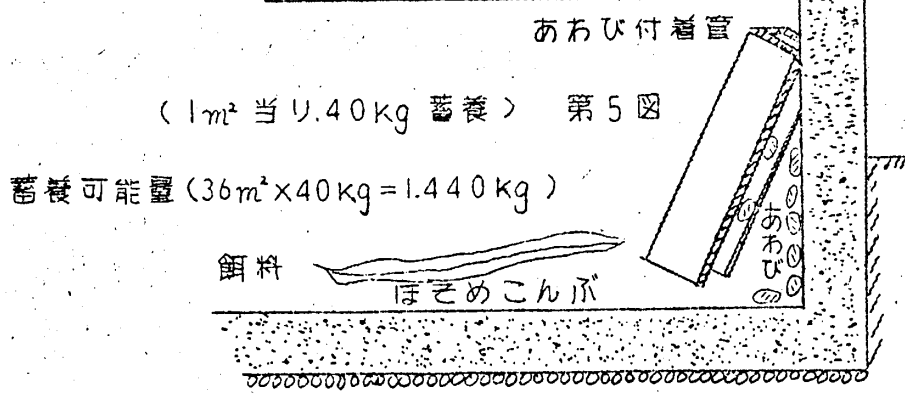 あわび付着管
(1m²当り.40Kg 蓄養) 第5図
蓄養可能量(36m²×40Kg=1.440Kg)
あわび
餌料
ほそめこんぶ